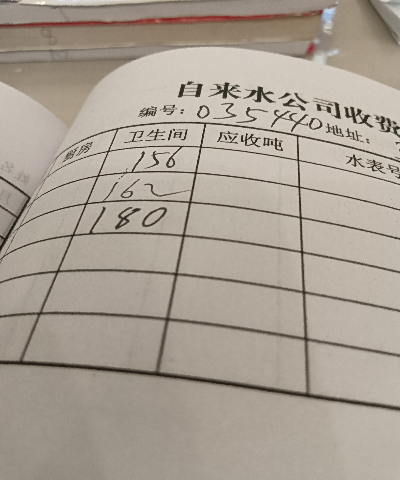 自来水公司收费
编号: 035440 地址:
厨房 卫生间 应收吨 水表号
156
162
180